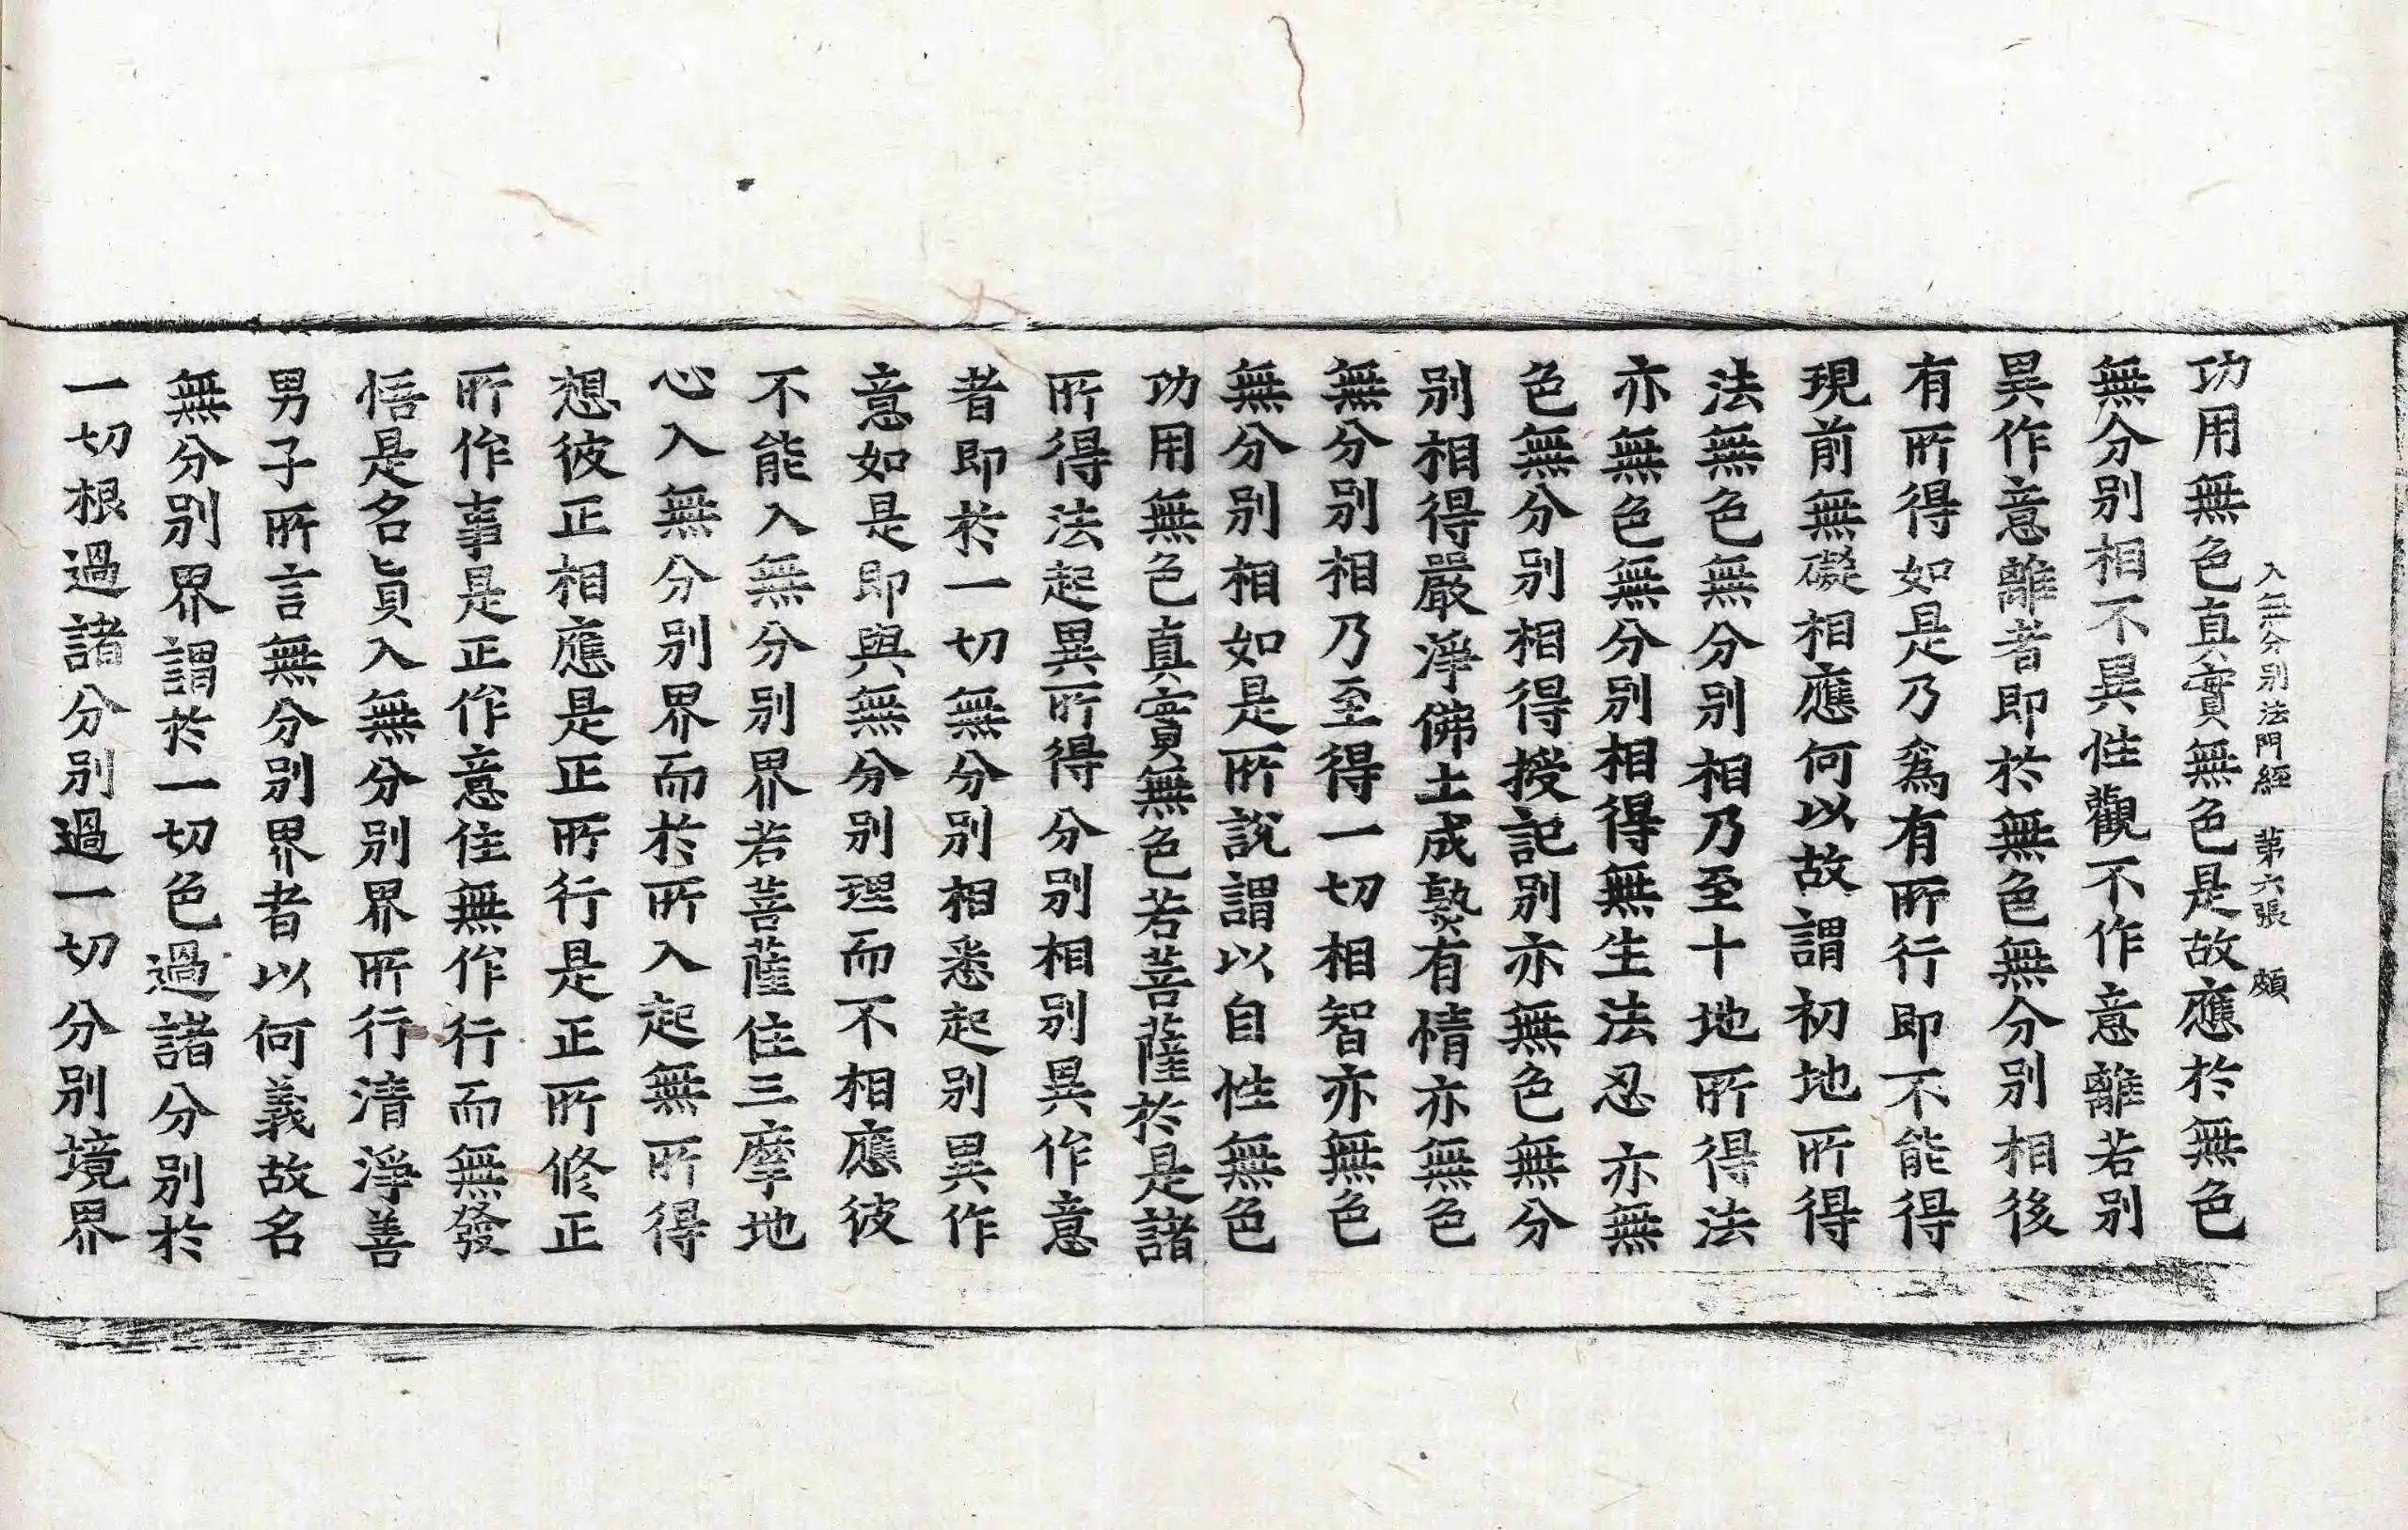 入無分别法門經 苐六張 頗
功用無色真實無色是故應於無色
無分别相不異性觀不作意離若别
異作意離者即於無色無分别相後
有所得如是乃爲有所行即不能得
現前無礙相應何以故謂初地所得
法無色無分别相乃至十地所得法
亦無色無分别相得無生法忍亦無
色無分别相得授記别亦無色無分
别相得嚴淨佛土成熟有情亦無色
無分别相乃至得一切相智亦無色
無分别相如是所說謂以自性無色
功用無色真實無色若菩薩於是諸
所得法起異所得分别相别異作意
者即於一切無分别相悉起别異作
意如是即與無分别理而不相應彼
不能入無分别界若菩薩住三摩地
心入無分别界而於所入起無所得
想彼正相應是正所行是正所修正
所作事是正作意住無作行而無發
悟是名眞入無分别界所行清淨善
男子所言無分别界者以何義故名
無分别界謂於一切色過諸分别於
一切根過諸分别過一切分别境界